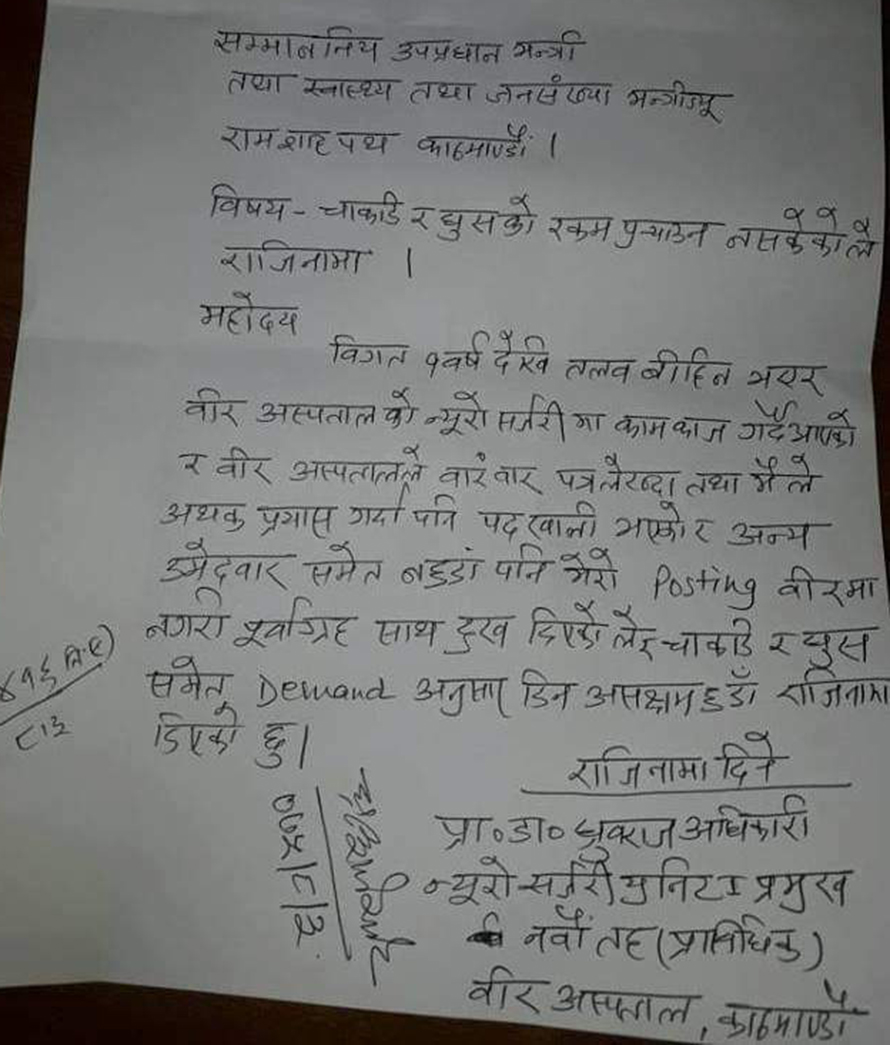 सम्माननिय उपप्रधान मन्त्री
तथा स्वास्थ्य तथा जनसंख्या मन्त्रीज्यू
रामशाह पथ काठमाण्डौं ।
विषय - चाकडि र घुसको रकम पुर्‍याउन नसकेकोले
राजिनामा ।
महोदय
विगत १ वर्ष देखि तलव वीहिन भएर
वीर अस्पतालको न्यूरो सर्जरीमा कामकाज गर्दै आएको
र वीर अस्पतालले वारंवार पत्र लेख्दा तथा मैले
अथक प्रयास गर्दा पनि पद खाली भएको र अन्य
उमेदवार समेत नहुडां पनि मेरो Posting वीरमा
नगरी पूर्वाग्रह साथ दुख दिएकोले र चाकडि र घुस
समेत Demand अनुसार दिन असक्षम हुडाँ राजिनामा
दिएको छु ।
राजिनामा दिने
प्रा॰ डा॰ ध्रुवराज अधिकारी
न्यूरो सर्जरी युनिट I प्रमुख
नवौं तह (प्राविधिक)
वीर अस्पताल, काठमाण्डौं